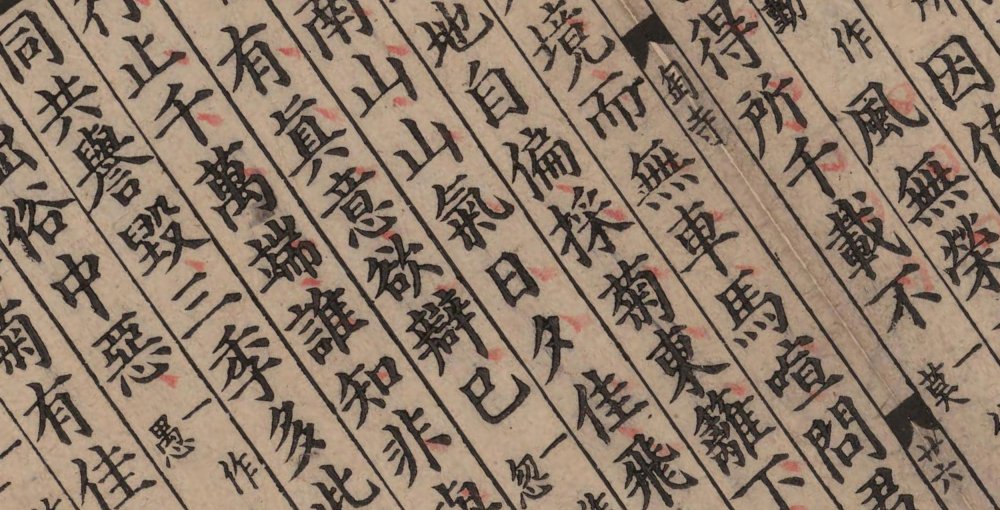 因
風無榮
得所千載不一莫
匋寺 廿六
境而無車馬喧問君
地自偏採菊東籬下
南山山氣日夕佳飛
有眞意欲辯已一忽
行止千萬端誰知非
同共譽毀三季多此
俗中惡一愚作
菊有佳